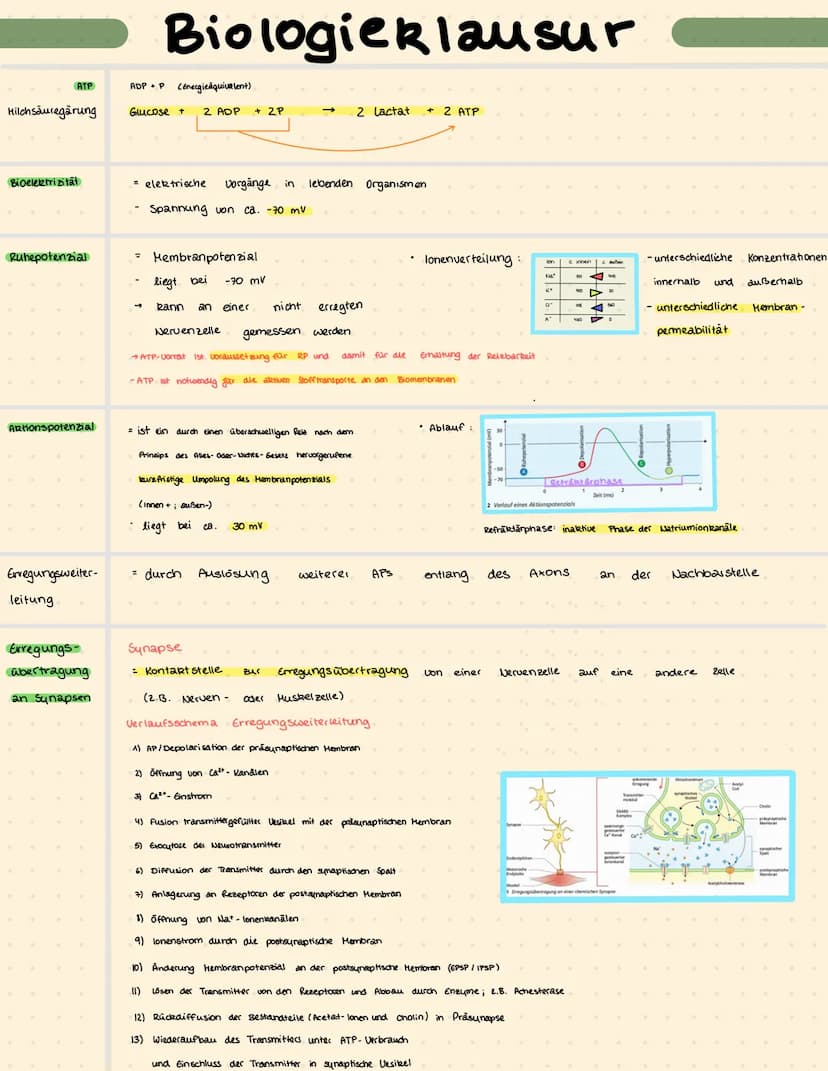 Biologieklausur
ATP
ADP + P (Energieäquivalent)
Milchsäuregärung
Glucose + 2 ADP + 2P → 2 Lactat + 2 ATP
Bioelektrizität
= elektrische Vorgänge in lebenden Organismen
- Spannung von ca. -70 mV
Ruhepotenzial
= Membranpotenzial
- liegt bei -70 mV
→ kann an einer nicht erregten
Nervenzelle gemessen werden
• Ionenverteilung:
Ion c innen c außen
Na⁺
K⁺
Cl⁻
A⁻
- unterschiedliche Konzentrationen
innerhalb und außerhalb
- unterschiedliche Membran-
permeabilität
→ ATP-Vorrat ist Voraussetzung für RP und damit für die Erhaltung der Reizbarkeit
- ATP ist notwendig für die aktiven Stofftransporte an den Biomembranen
Aktionspotenzial
= ist ein durch einen überschwelligen Reiz nach dem
Prinzip des Alles-Oder-Nichts-Gesetz hervorgerufene
kurzfristige Umpolung des Membranpotenzials
(innen + ; außen-)
· liegt bei ca. 30 mV
• Ablauf:
Membranpotenzial (mV)
30
0
-50
-70
A Ruhepotenzial
B Depolarisation
C Repolarisation
D Hyperpolarisation
Refraktärphase
0 1 2 3 4
Zeit (ms)
2 Verlauf eines Aktionspotenzials
Refraktärphase: inaktive Phase der Natriumionkanäle
Erregungsweiter-
leitung
= durch Auslösung weiterer APs entlang des Axons an der Nachbarstelle
Erregungs-
übertragung
an Synapsen
Synapse
= Kontaktstelle zur Erregungsübertragung von einer Nervenzelle auf eine andere Zelle
(z.B. Nerven- oder Muskelzelle)
Verlaufsschema Erregungsweiterleitung
1) AP/Depolarisation der präsynaptischen Membran
2) Öffnung von Ca²⁺-Kanälen
3) Ca²⁺-Einstrom
4) Fusion transmittergefüllter Vesikel mit der präsynaptischen Membran
5) Exocytose der Neurotransmitter
6) Diffusion der Transmitter durch den synaptischen Spalt
7) Anlagerung an Rezeptoren der postsynaptischen Membran
8) Öffnung von Na⁺-Ionenkanälen
9) Ionenstrom durch die postsynaptische Membran
10) Änderung Membranpotenzial an der postsynaptische Membran (EPSP / IPSP)
11) Lösen der Transmitter von den Rezeptoren und Abbau durch Enzyme; z.B. Achesterase
12) Rückdiffusion der Bestandteile (Acetat-Ionen und Cholin) in Präsynapse
13) Wiederaufbau des Transmitters unter ATP-Verbrauch
und Einschluss der Transmitter in synaptische Vesikel
Synapse
Endknöpfchen
Motorische
Endplatte
Muskel
ankommende
Erregung
Mitochondrium
Acetyl-
CoA
Transmitter-
molekül
synaptisches
Vesikel
Cholin
SNARE-
Komplex
präsynaptische
Membran
Ca²⁺
Na⁺
synaptischer
Spalt
postsynaptische
Membran
Acetylcholinesterase
1 Erregungsübertragung an einer chemischen Synapse